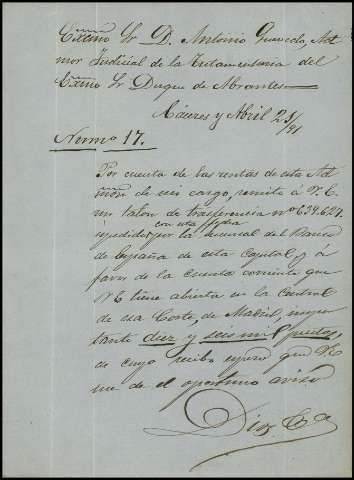 Excmo Sr D. Antonio Quevedo, Ad
mor Judicial de la Testamentaría del
Exmo Sr Duque de Abrantes
Cáceres y Abril 23/91
Numo 17.
Por cuenta de las rentas de esta Ad
món de mi cargo, remito á V.E.
un talon de trasferencia no 639.627.
con esta fecha
expedido por la sucursal del Banco
de España de esta Capital y á
favor de la cuenta corriente que
V.E. tiene abierta en la Central
de esa Corte, de Madrid, impor
tante diez y seis mil pesetas,
de cuyo recibo espero que V.E.
me de el oportuno aviso